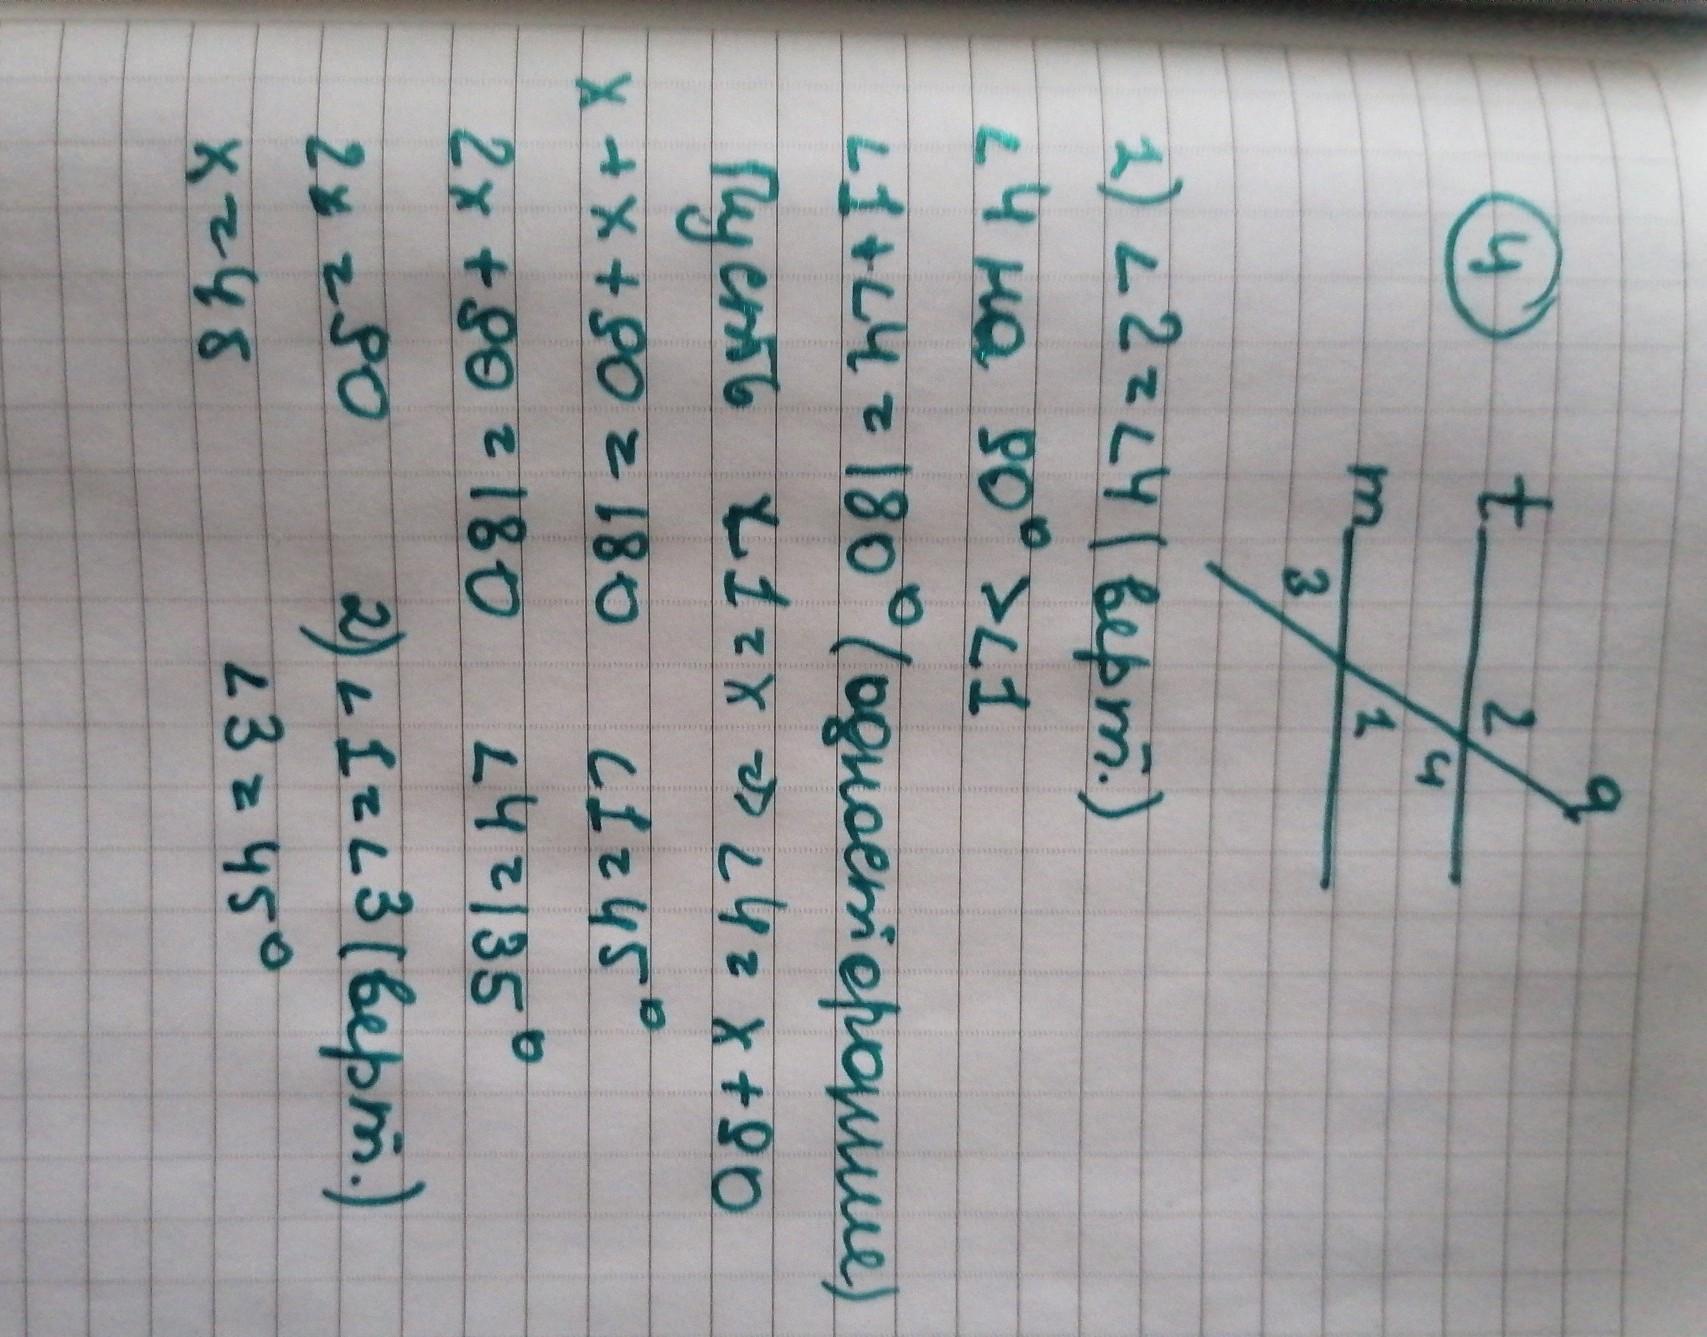 4
q
t 2
4
m 1
3
1) ∠2=∠4 (верт.)
∠4 на 90° > ∠1
∠1+∠4=180° (односторонние)
Пусть ∠1=x ⇒ ∠4=x+90
x+x+90=180 ∠1=45°
2x+90=180 ∠4=135°
2x=90 2) ∠1=∠3 (верт.)
x=45 ∠3=45°